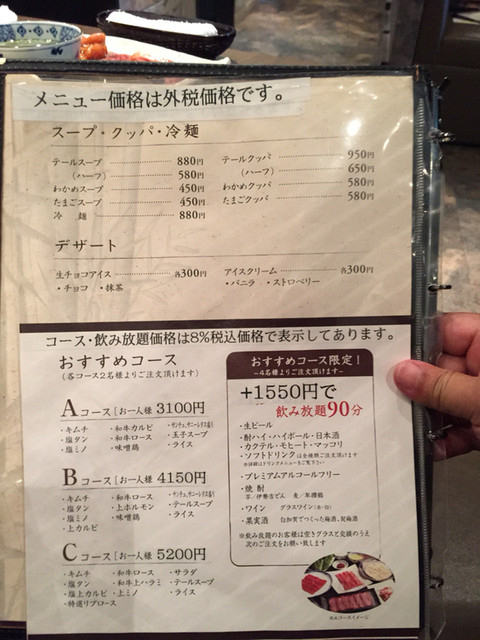 メニュー価格は外税価格です。
スープ・クッパ・冷麺
テールスープ 880円
(ハーフ) 580円
わかめスープ 450円
たまごスープ 450円
冷 麺 880円
テールクッパ 950円
(ハーフ) 650円
わかめクッパ 580円
たまごクッパ 580円
デザート
生チョコアイス 各300円
・チョコ ・抹茶
アイスクリーム 各300円
・バニラ ・ストロベリー
コース・飲み放題価格は8%税込価格で表示してあります。
おすすめコース
(各コース2名様よりご注文頂けます)
Aコース[お一人様 3100円
・キムチ ・和牛カルビ ・サンチュ、サニーレタス盛り
・塩タン ・和牛ロース ・玉子スープ
・塩ミノ ・味噌鶏 ・ライス
Bコース[お一人様 4150円
・キムチ ・和牛ロース ・サンチュ、サニーレタス盛り
・塩タン ・上ホルモン ・テールスープ
・塩ミノ ・味噌鶏 ・ライス
・上カルビ
Cコース[お一人様 5200円
・キムチ ・和牛ロース ・サラダ
・塩タン ・和牛上ハラミ ・テールスープ
・塩上カルビ ・上ミノ ・ライス
・特選リブロース
おすすめコース限定!
~4名様よりご注文頂けます~
+1550円で
飲み放題90分
・生ビール
・酎ハイ・ハイボール・日本酒
・カクテル・モヒート・マッコリ
・ソフトドリンクは全種類ご注文頂けます
※詳細はドリンクメニューをご覧下さい。
・プレミアムアルコールフリー
・焼 酎
・ワイン グラスワイン(赤・白)
・果実酒 自加賀でつくった梅酒、
※飲み放題のお客様は空きグラスと交換のうえ
次のご注文をお願い致します